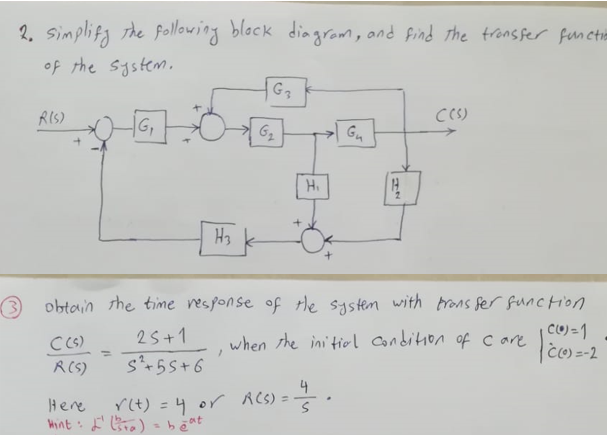 2. Simplify the following block diagram, and find the transfer functi
of the system.
G3
R(s)
+
-
G1
+
+
G2
G4
C(s)
H1
H2
H3
+
+
3 obtain the time response of the system with transfer function
C(s)/R(s) = 2S+1/S²+5S+6, when the initial condition of c are | C(0)=1
Ċ(0)=-2
Here r(t) = 4 or R(s) = 4/s.
Hint: L⁻¹(b/s+a) = b e^-at